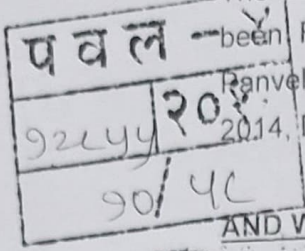 प व ल been
Ranve
१२८५५ २०१
2014,
१०/ ५८
AND